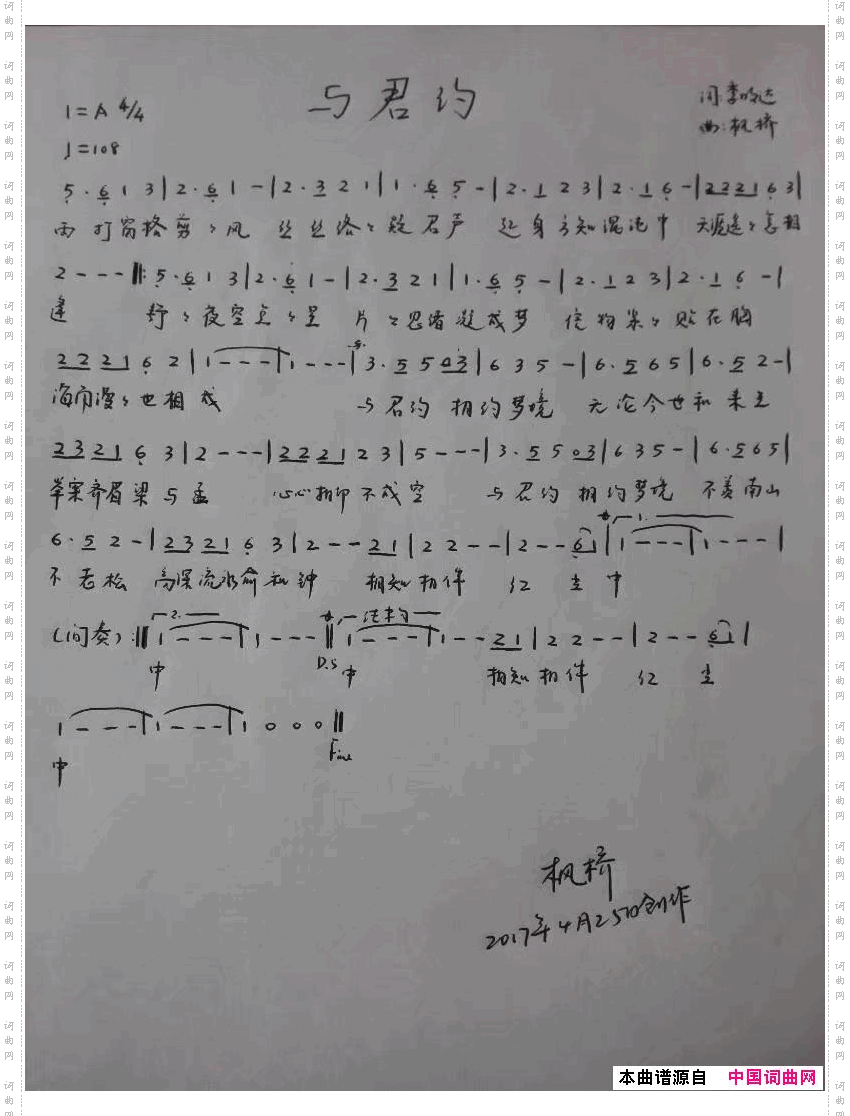 与君约
1=A 4/4
词:李 达
♩=108
曲:枫桥
5·6 1 3|2·6 1 -|2·3 2 1|1·6 5 -|2·1 2 3|2·1 6 -|2 2 2 1 6 3|
雨打窗格剪々风 丝丝络々疑君声 起身方知混沌中 天涯遥々怎相
2 - - -‖:5·6 1 3|2·6 1 -|2·3 2 1|1·6 5 -|2·1 2 3|2·1 6 -|
逢 野々夜空点々星 片々思绪凝成梦 信物朵々贴在胸
2 2 2 1 6 2|1 - - -|1 - - -|3·5 5 0 3|6 3 5 -|6·5 6 5|6·5 2 -|
海市漫々也相成 与君约 相约梦境 无论今世和来生
2 3 2 1 6 3|2 - - -|2 2 2 1 2 3|5 - - -|3·5 5 0 3|6 3 5 -|6·5 6 5|
举案齐眉梁与孟 心心相印不成空 与君约 相约梦境 不羡南山
6·5 2 -|2 3 2 1 6 3|2 - - 2 1|2 2 - -|2 - - 6 1|1. 1 - - -|1 - - -|
不老松 高深流水俞和钟 相知相伴 红 尘 中
(间奏):‖2. 1 - - -|1 - - -‖结束句 1 - - -|1 - - 2 1|2 2 - -|2 - - 6 1|
中 D.S 中 相知相伴 红 尘
1 - - -|1 - - -|1 0 0 0‖
中 Fine
枫桥
2017年4月25日创作
本曲谱源自 中国词曲网
词曲网